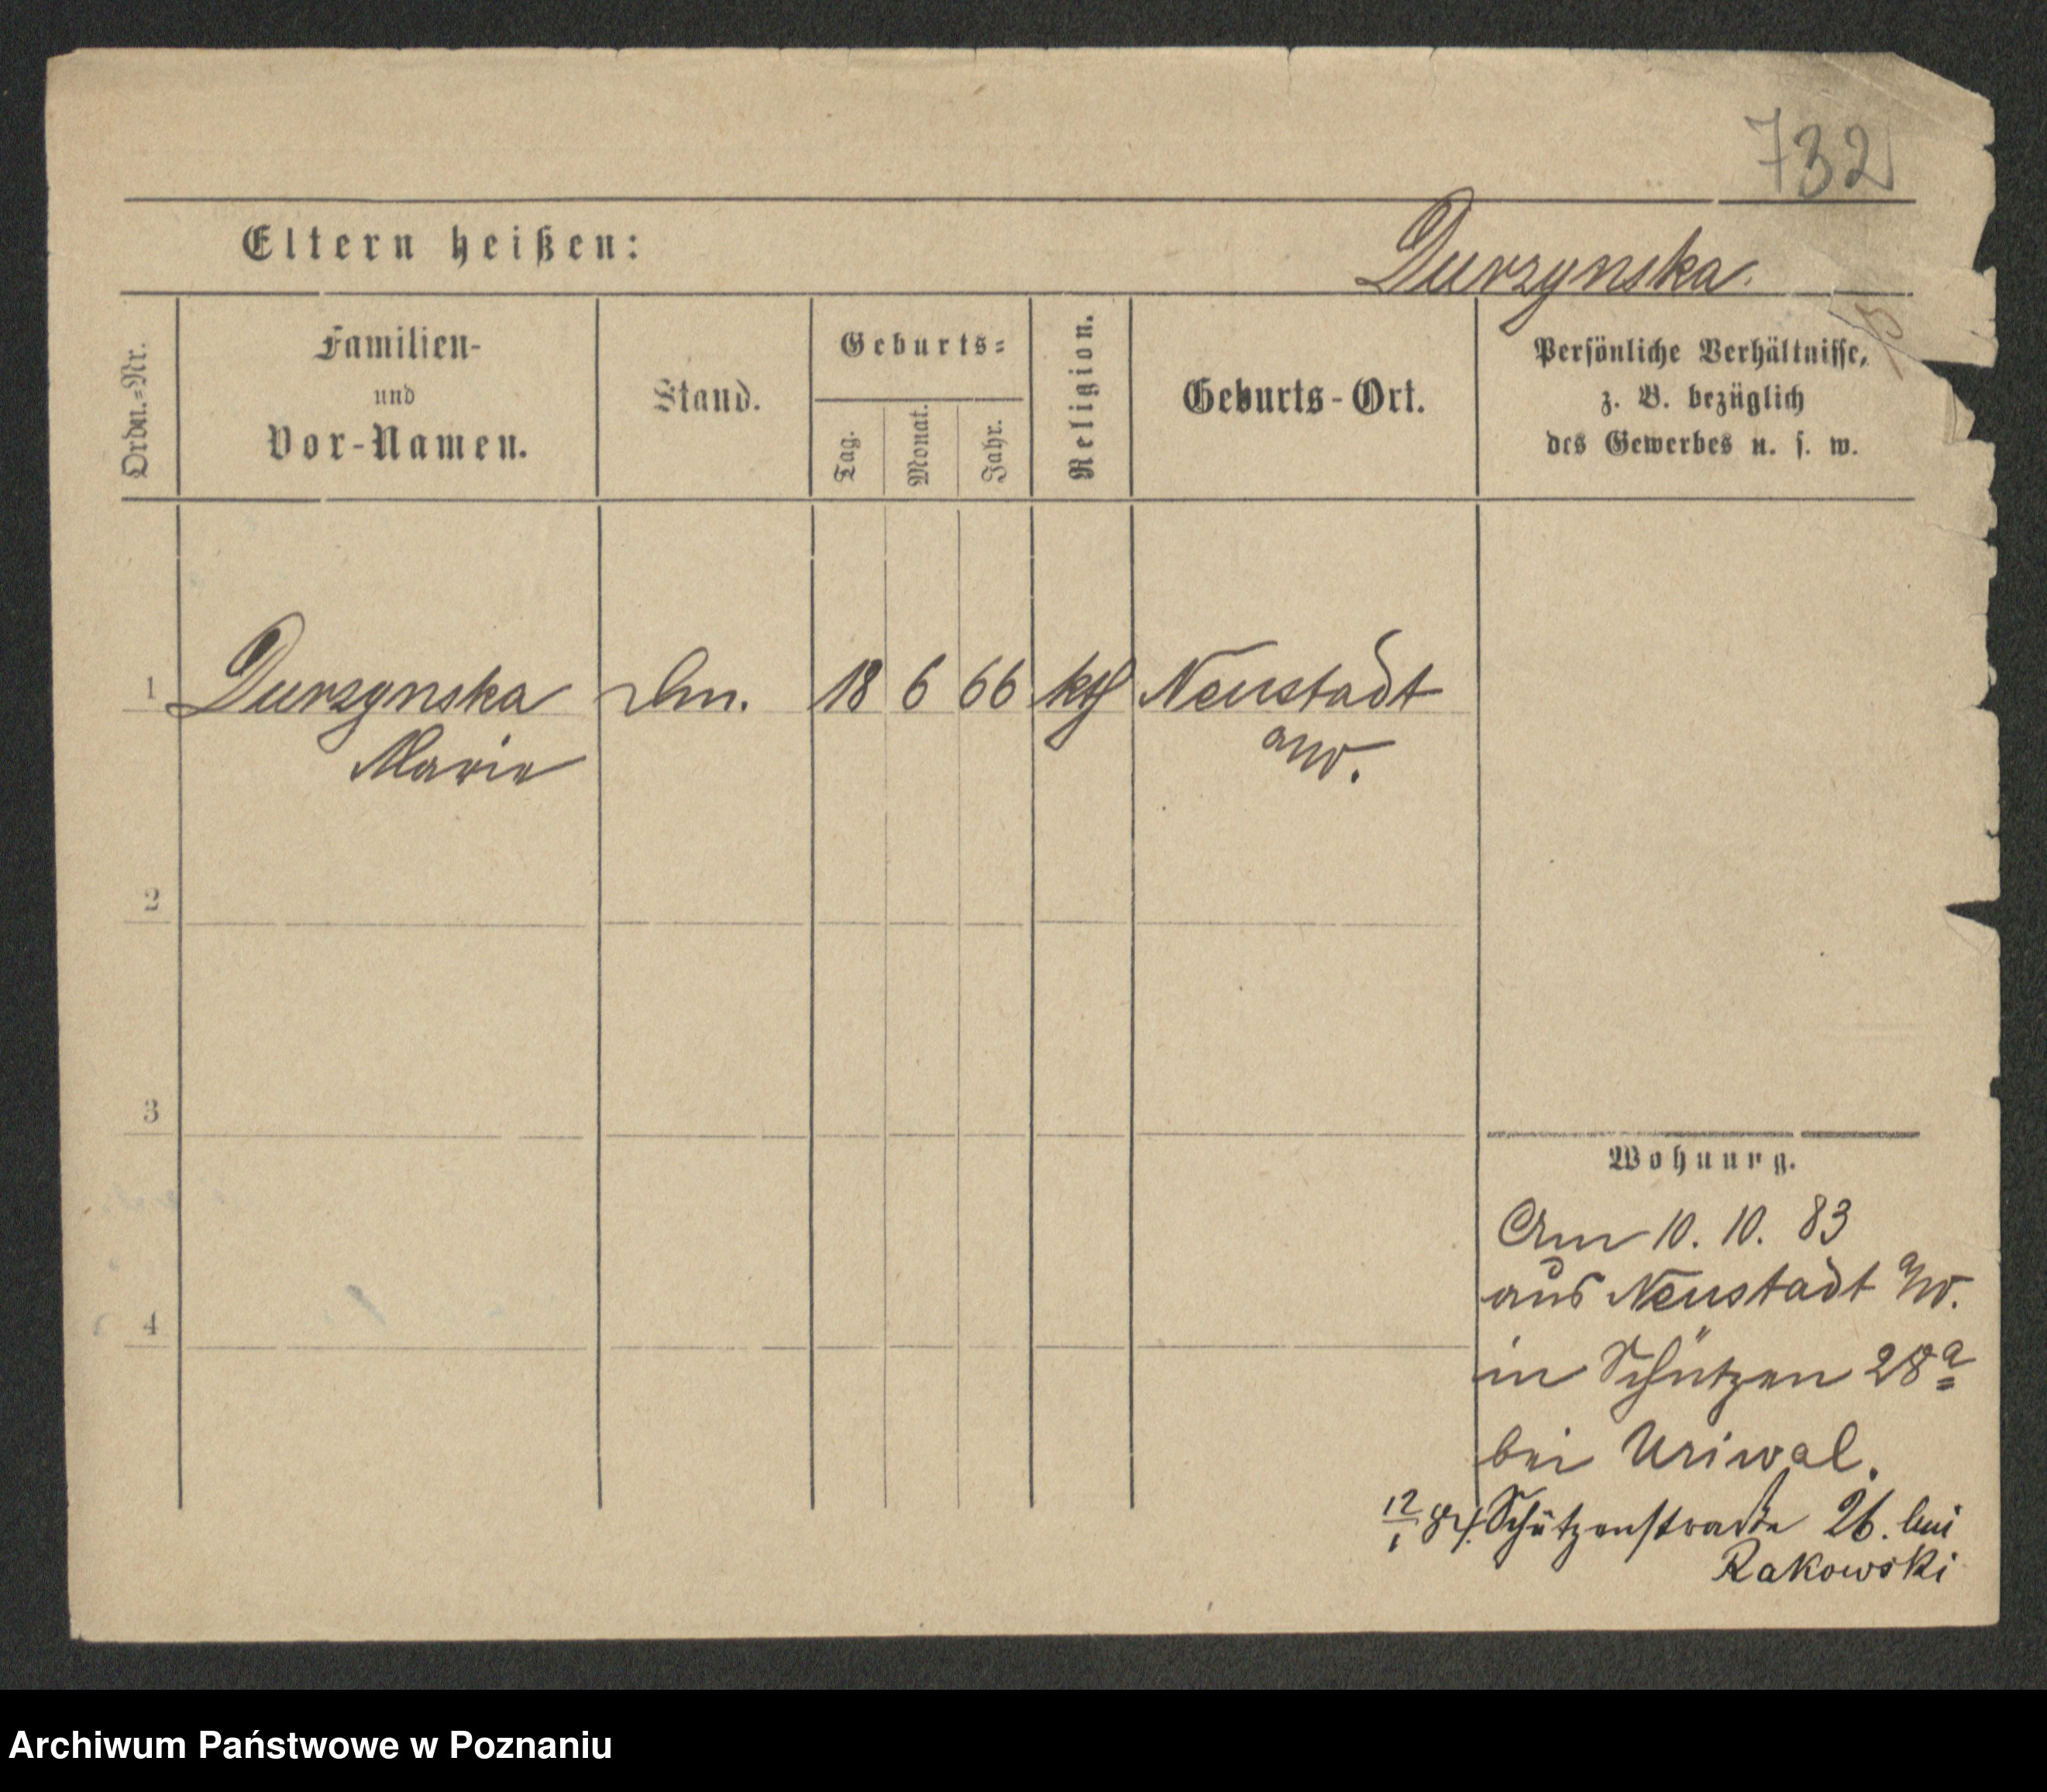 732
Eltern heißen:
Durzynska.
Ordn.=Nr.
Familien-
und
Vor-Namen.
Stand.
Geburts=
Tag.
Monat.
Jahr.
Religion.
Geburts-Ort.
Persönliche Verhältnisse,
z. B. bezüglich
des Gewerbes u. s. w.
1 Durzynska 18 6 66 kth Neustadt
Marie a/W.
2
3
4
Wohnung.
Am 10. 10. 83
aus Neustadt a/W.
in Schützen 28a
bei Uriwal.
12/1 84. Schützenstraße 26. bei
Rakowski
Archiwum Państwowe w Poznaniu